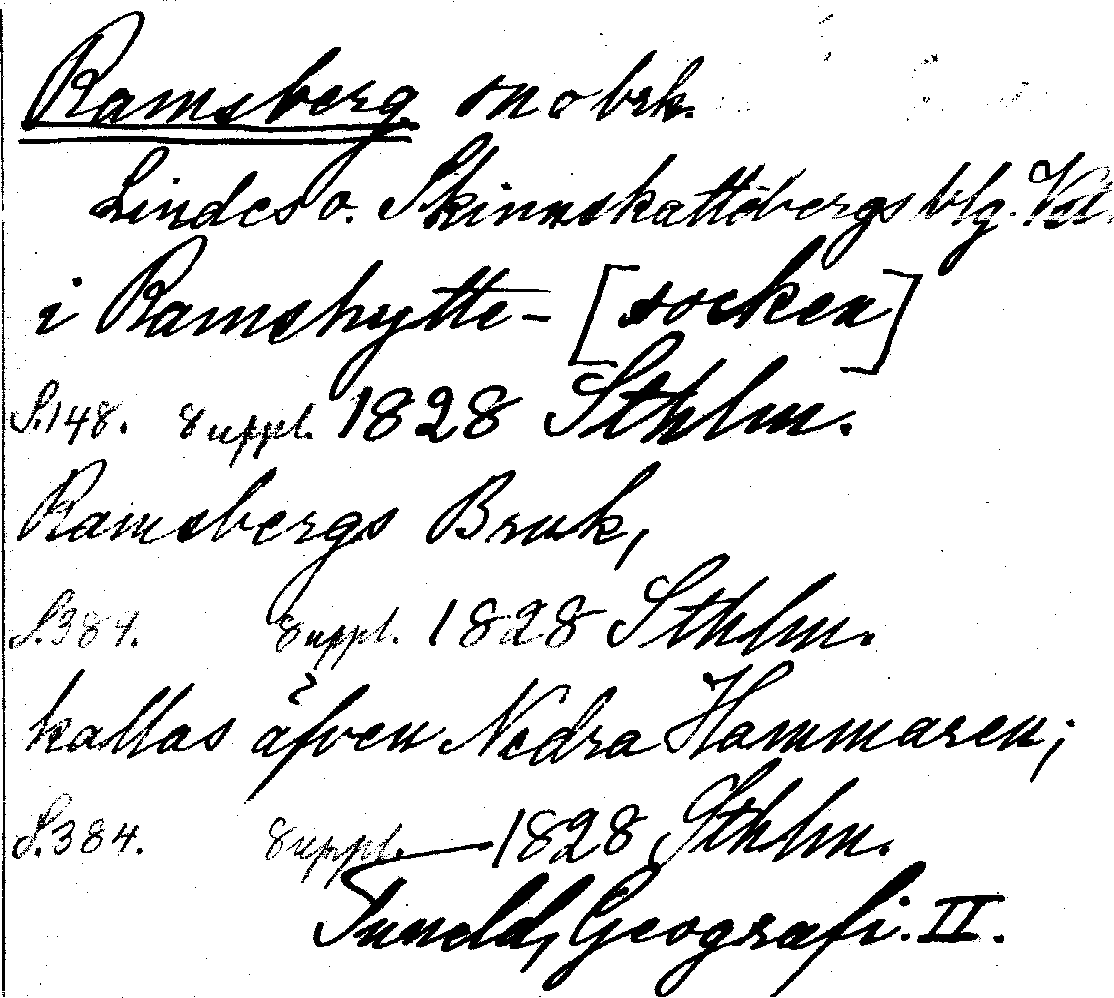 Ramsberg sn o brk.
Lindes o. Skinnskattebergs blg. Vstm.
i Ramshytte- [socken]
S.148. Suppl. 1828 Sthlm.
Ramsbergs Bruk,
S.384. Suppl. 1828 Sthlm.
kallas äfven Nedra Hammaren;
S.384. Suppl. 1828 Sthlm.
Tuneld, Geografi. II.